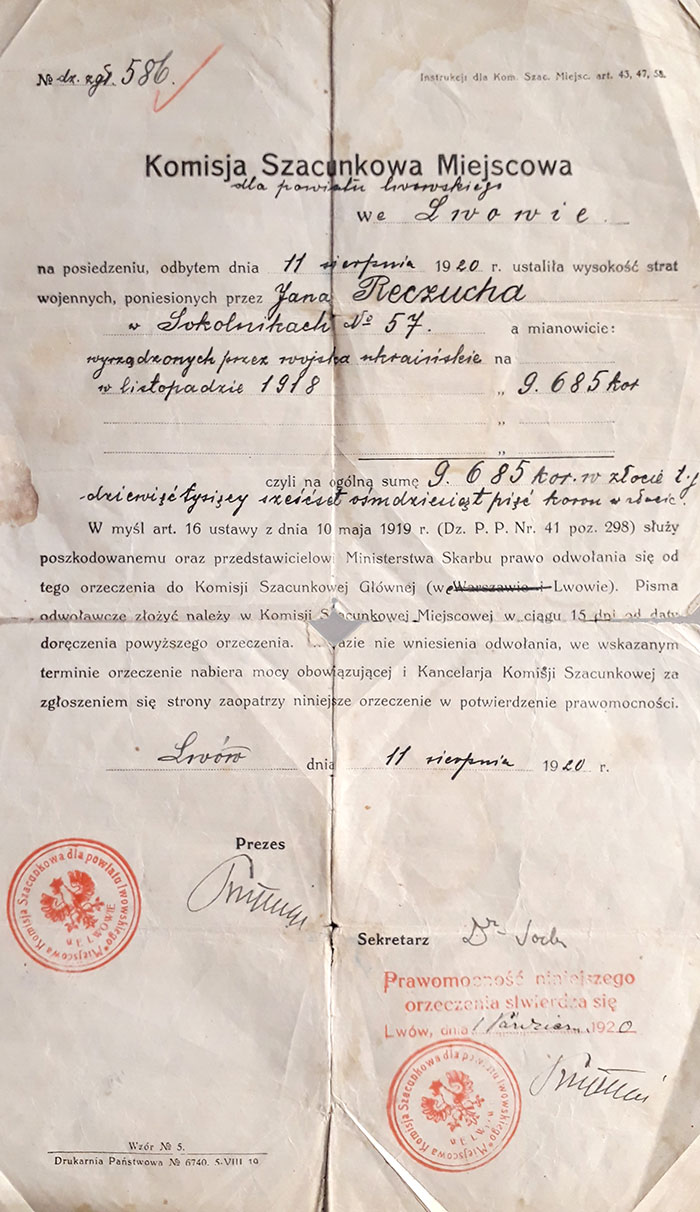 № dz. zgł. 586.
Instrukcji dla Kom. Szac. Miejsc. art. 43, 47, 58.
Komisja Szacunkowa Miejscowa
dla powiatu lwowskiego
we Lwowie.
na posiedzeniu, odbytem dnia 11 sierpnia 1920 r. ustaliła wysokość strat
wojennych, poniesionych przez Jana Reczucha
w Sokolnikach № 57. a mianowicie:
wyrządzonych przez wojska ukraińskie na
w listopadzie 1918 „ 9.685 kor
„
„
czyli na ogólną sumę 9.685 kor. w złocie t.j
dziewięć tysięcy sześćset ośmdziesiąt pięć koron w złocie.
W myśl art. 16 ustawy z dnia 10 maja 1919 r. (Dz. P. P. Nr. 41 poz. 298) służy
poszkodowanemu oraz przedstawicielowi Ministerstwa Skarbu prawo odwołania się od
tego orzeczenia do Komisji Szacunkowej Głównej (we Warszawie i Lwowie). Pisma
odwoławcze złożyć należy w Komisji Szacunkowej Miejscowej w ciągu 15 dni od daty
doręczenia powyższego orzeczenia. razie nie wniesienia odwołania, we wskazanym
terminie orzeczenie nabiera mocy obowiązującej i Kancelarja Komisji Szacunkowej za
zgłoszeniem się strony zaopatrzy niniejsze orzeczenie w potwierdzenie prawomocności.
Lwów dnia 11 sierpnia 1920 r.
Prezes
Miejscowa Komisja Szacunkowa dla powiatu lwowskiego
WE LWOWIE
Sekretarz Dr
Prawomocność niniejszego
orzeczenia stwierdza się
Lwów, dnia 1 1920
Miejscowa Komisja Szacunkowa dla powiatu lwowskiego
WE LWOWIE
Wzór № 5.
Drukarnia Państwowa № 6740. 5-VIII 19